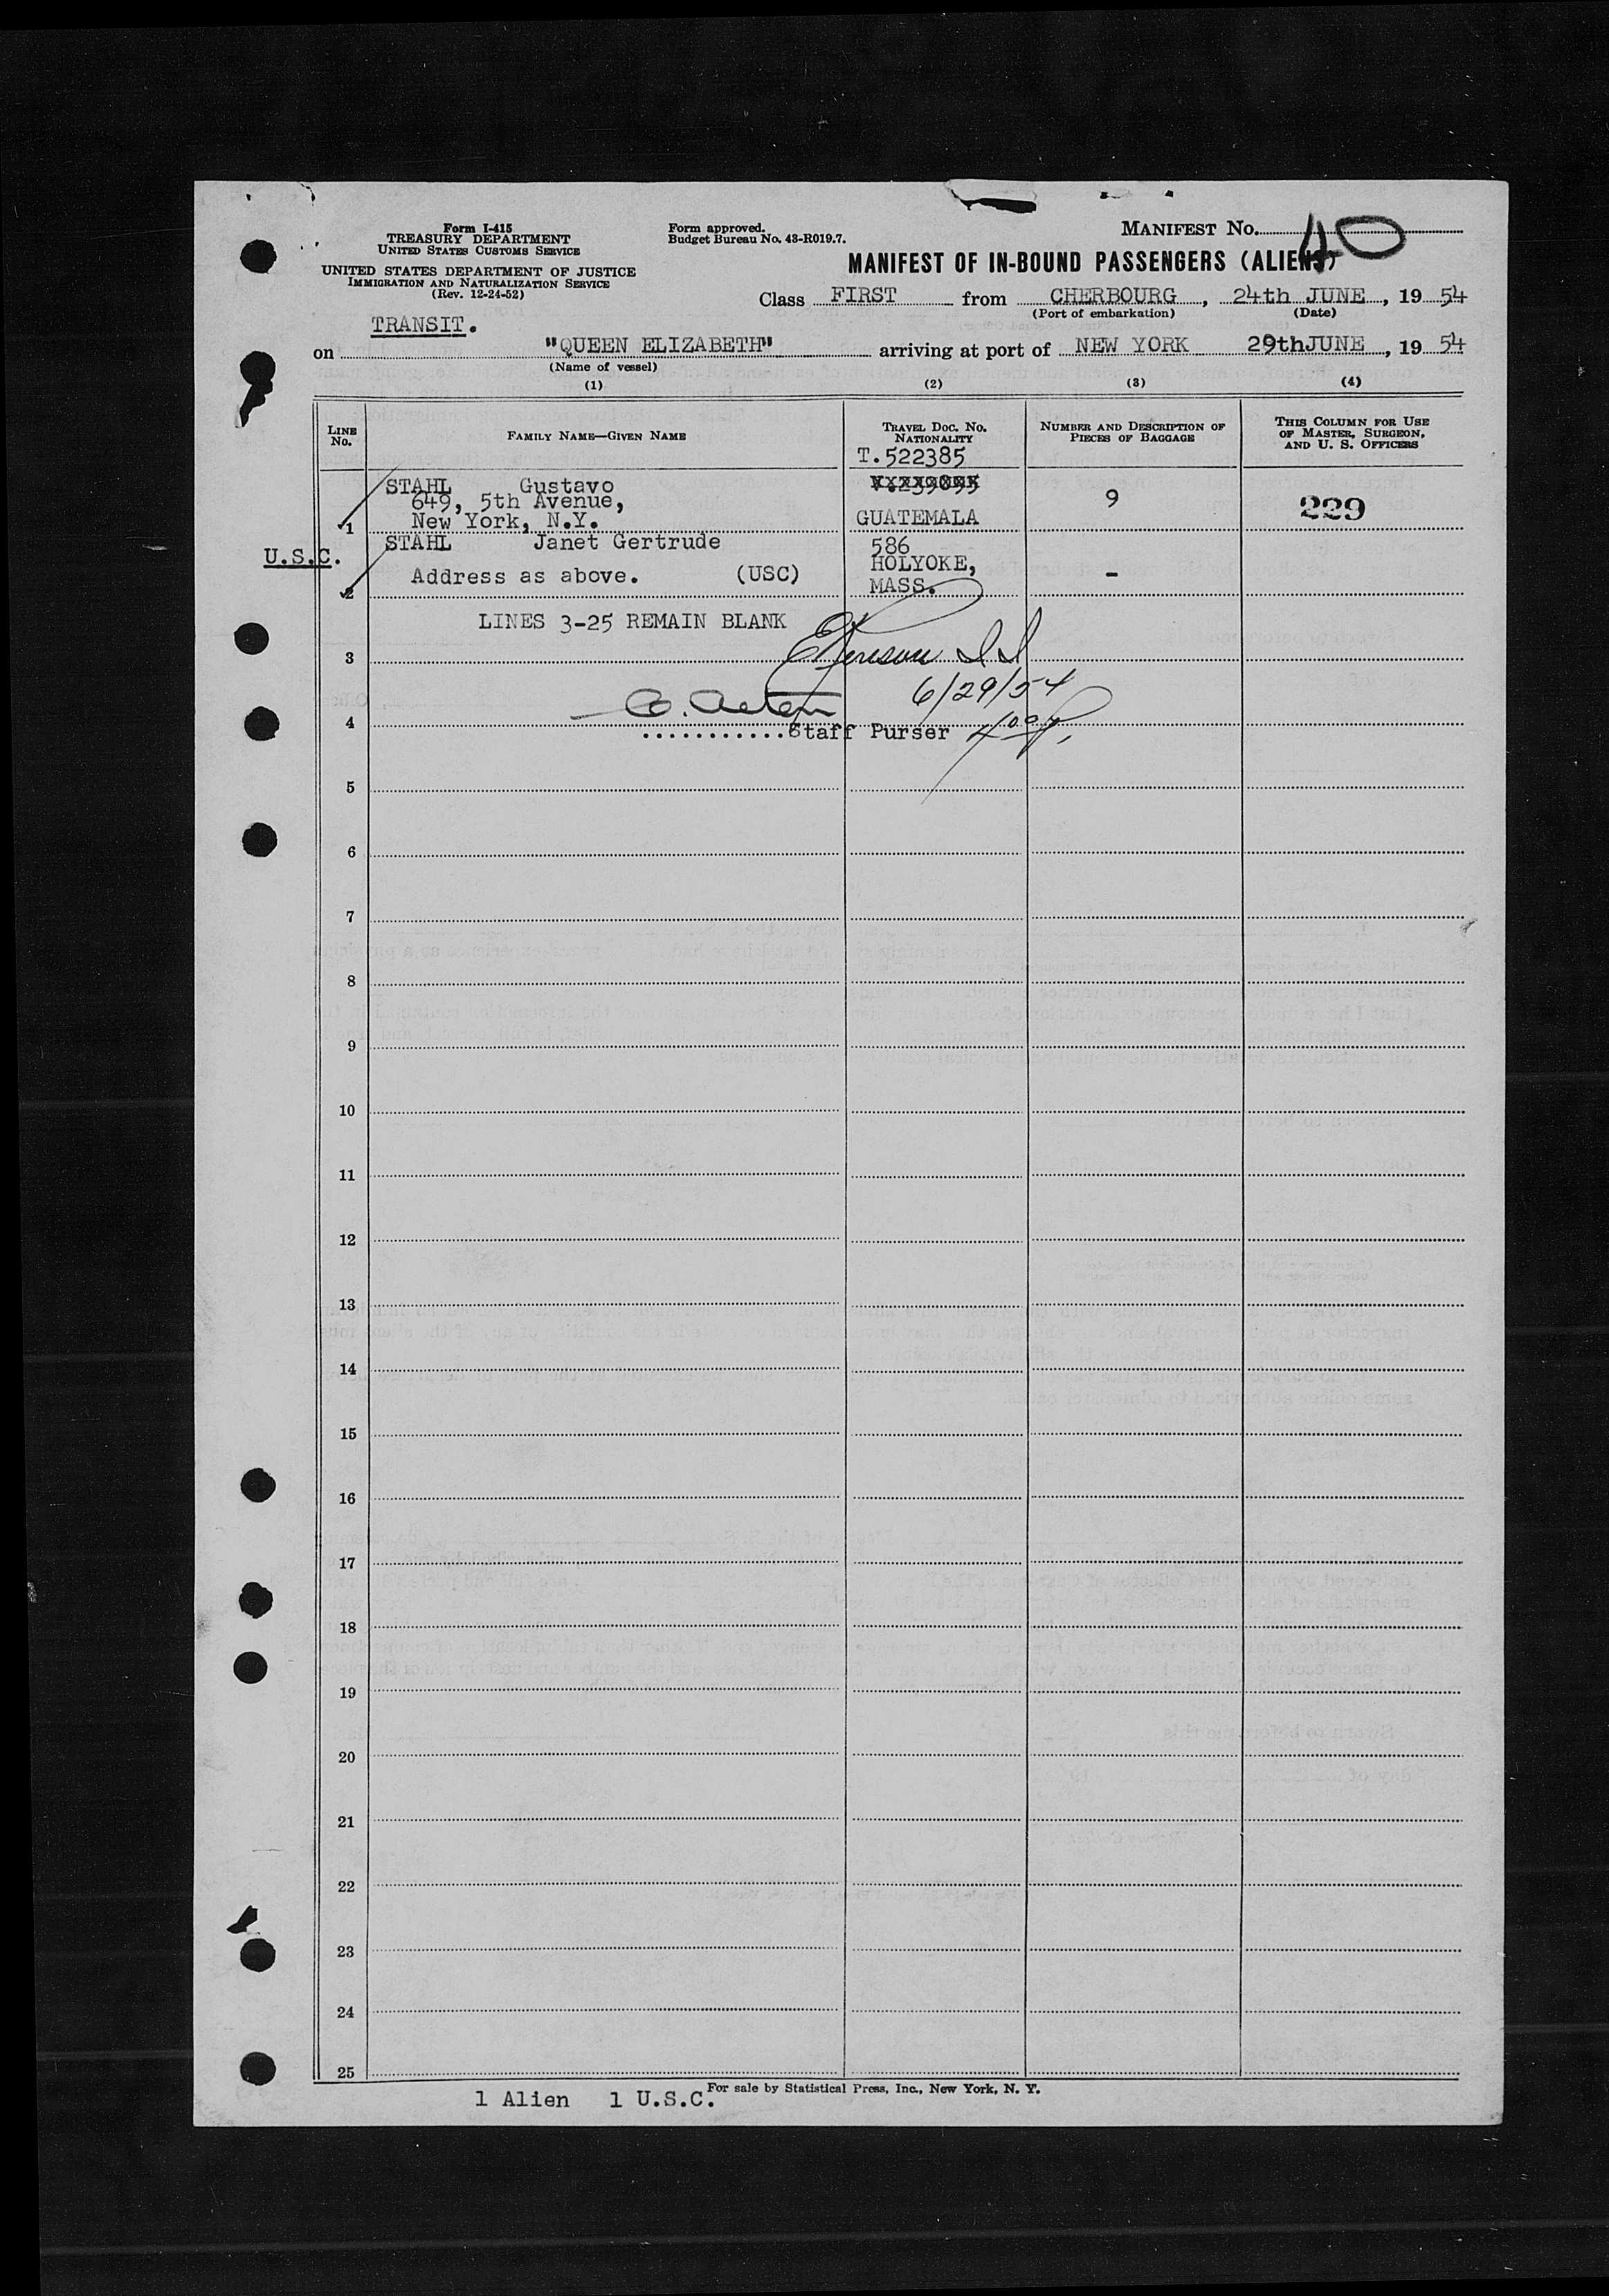 Form I-415
TREASURY DEPARTMENT
UNITED STATES CUSTOMS SERVICE
UNITED STATES DEPARTMENT OF JUSTICE
IMMIGRATION AND NATURALIZATION SERVICE
(Rev. 12-24-52)
Form approved.
Budget Bureau No. 43-R019.7.
MANIFEST No. 40
MANIFEST OF IN-BOUND PASSENGERS (ALIENS)
Class FIRST from CHERBOURG, 24th JUNE, 19 54
(Port of embarkation) (Date)
TRANSIT.
on "QUEEN ELIZABETH" arriving at port of NEW YORK 29thJUNE, 19 54
(Name of vessel)
(1) (2) (3) (4)
LINE No. FAMILY NAME—GIVEN NAME TRAVEL DOC. No. NATIONALITY NUMBER AND DESCRIPTION OF PIECES OF BAGGAGE THIS COLUMN FOR USE OF MASTER, SURGEON, AND U. S. OFFICERS
T.522385
STAHL Gustavo
649, 5th Avenue, 9 229
1 New York, N.Y. GUATEMALA
U.S.C. STAHL Janet Gertrude 586
HOLYOKE,
Address as above. (USC) -
2 MASS.
LINES 3-25 REMAIN BLANK
3
6/29/54
4
...........Staff Purser
5
6
7
8
9
10
11
12
13
14
15
16
17
18
19
20
21
22
23
24
25
For sale by Statistical Press, Inc., New York, N. Y.
1 Alien 1 U.S.C.